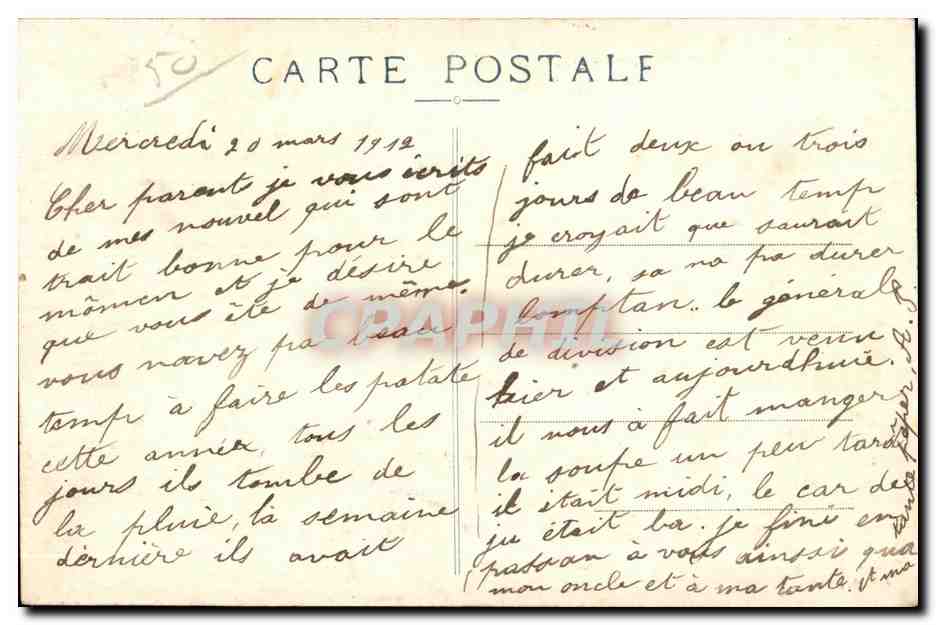 50
CARTE POSTALE
Mercredi 20 mars 1912
Cher parents je vous écrits
de mes nouvel qui sont
trait bonne pour le
mômen et je désire
que vous ête de même.
vous navez pa beau
temp à faire les patate
cette année, tous les
jours ils tombe de
la pluie, la semaine
dernière ils avait
fait deux ou trois
jours de beau temp
je croyait que saurait
durer, sa na pa durer
lomptan.. le générale
de division est venu
hier et aujourdhuie.
il nous à fait manger
la soupe un peu tard
il était midi, le car de
ju était ba. je fini en
passan à vous ainsi qua
mon oncle et à ma tante. et ma
tante
CRAPHIL